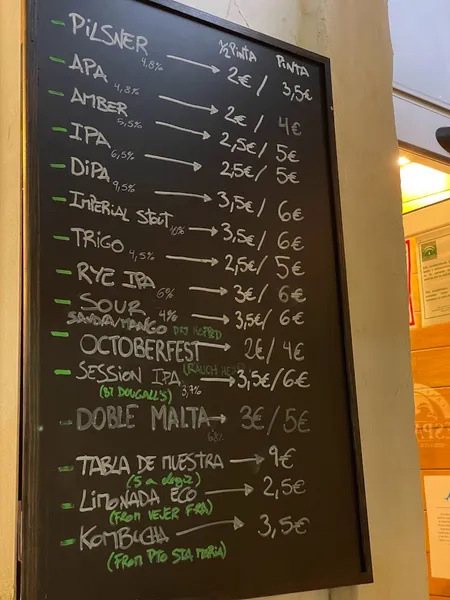 ½ PINTA PINTA
- PILSNER 4,8% → 2€ / 3,5€
- APA 4,8% → 2€ / 4€
- AMBER 5,5% → 2,5€ / 5€
- IPA 6,5% → 2,5€ / 5€
- DIPA 9,5% → 3,5€ / 6€
- IMPERIAL STOUT 10% → 3,5€ / 6€
- TRIGO 4,5% → 2,5€ / 5€
- RYE IPA 6% → 3€ / 6€
- SOUR 4% → 3,5€ / 6€
SANDIA/MANGO DRY HOPPED
- OCTOBERFEST → 2€ / 4€
- SESSION IPA 3,7% → 3,5€ / 6€
(BY DOUGALL'S)
- DOBLE MALTA → 3€ / 5€
- TABLA DE MUESTRA → 9€
(5 a elegir)
- LIMONADA ECO → 2,5€
(FROM VEJER FRA)
- KOMBUCHA → 3,5€
(FROM PTO STA MARIA)